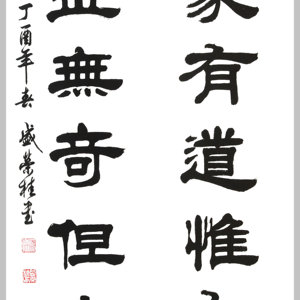 家有道惟
世無奇但
丁酉年春 盛榮桂書